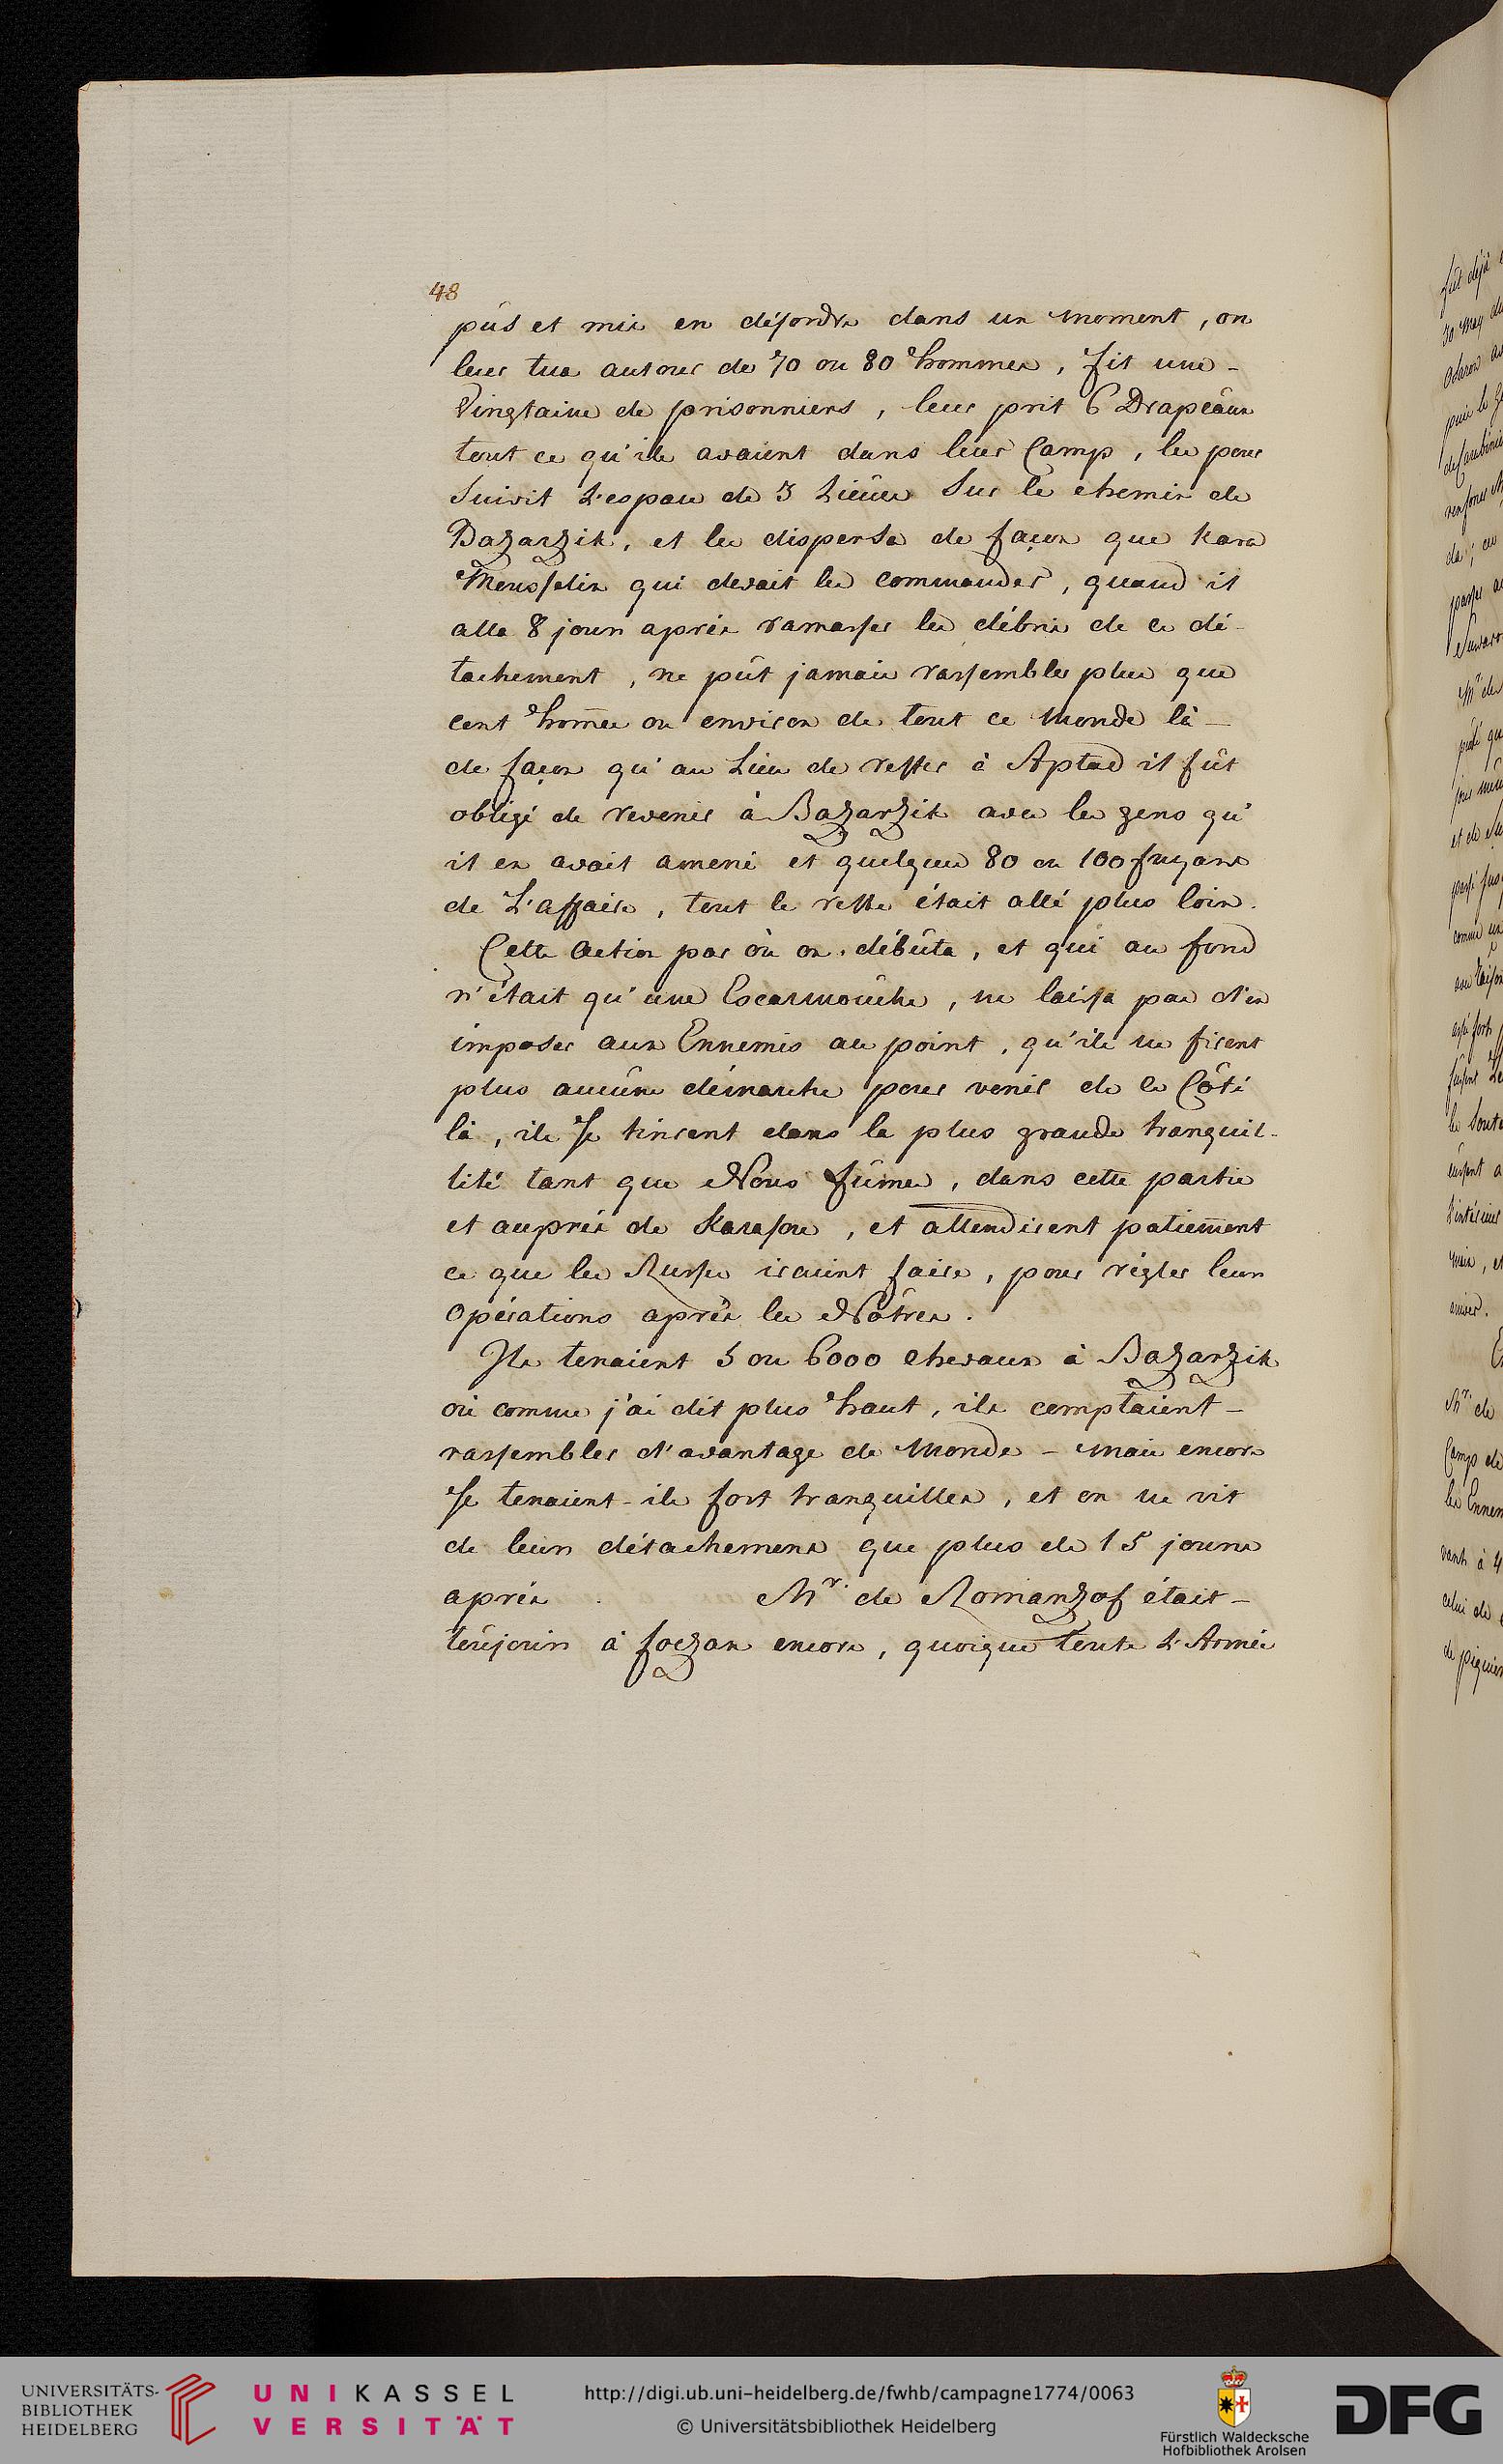 48
pûs et mis en désordre dans un moment, on
leur tua autour de 70 ou 80 hommes, fit une -
Vingtaine de prisonniers, leur prit 6 Drapeâux
tout ce qu'ils avaient dans leur Camp, les pour
Suivit L'espace de 3 Lieûes Sur le chemin de
Bazarzik, et les dispersa de façon que Kara
Mousselin qui devait les commander, quand il
alla 8 jours après ramasser les débris de ce dé-
tachement, ne pût jamais rassembler plus que
cent hom̄es ou environ de tout ce Monde là -
de façon qu'au Lieu de rester à Aptad il fût
obligé de revenir à Bazarzik avec les gens qu'
il en avait amené et quelques 80 ou 100 fuyans
de L'affaire, tout le reste était allé plus loin.
Cette Action par où on débûta, et qui au fond
n'était qu'une Escarmoûche, ne laissa pas d'en
imposer aux Ennemis au point, qu'ils ne firent
plus aucûne démarche pour venir de ce Côté
là, ils se tinrent dans la plus grande tranquil-
lité tant que Nous fûmes, dans cette partie
et auprès de Karasou, et attendirent patiem̄ent
ce que les Russes iraient faire, pour régler leurs
Opérations après les Nôtres.
Ils tenaient 5 ou 6000 chevaux à Bazarzik
où comme j'ai dit plus haut, ils comptaient -
rassembler d'avantage de Monde - mais encore
se tenaient-ils fort tranquilles, et on ne vit
de leurs détachemens que plus de 15 jours
après. Mr. de Romanzof était -
toûjours à foczan encore, quoique toute L'Armée
UNIVERSITÄTS-
BIBLIOTHEK
HEIDELBERG
UNIKASSEL
VERSITÄT
http://digi.ub.uni-heidelberg.de/fwhb/campagne1774/0063
© Universitätsbibliothek Heidelberg
Fürstlich Waldecksche
Hofbibliothek Arolsen
DFG